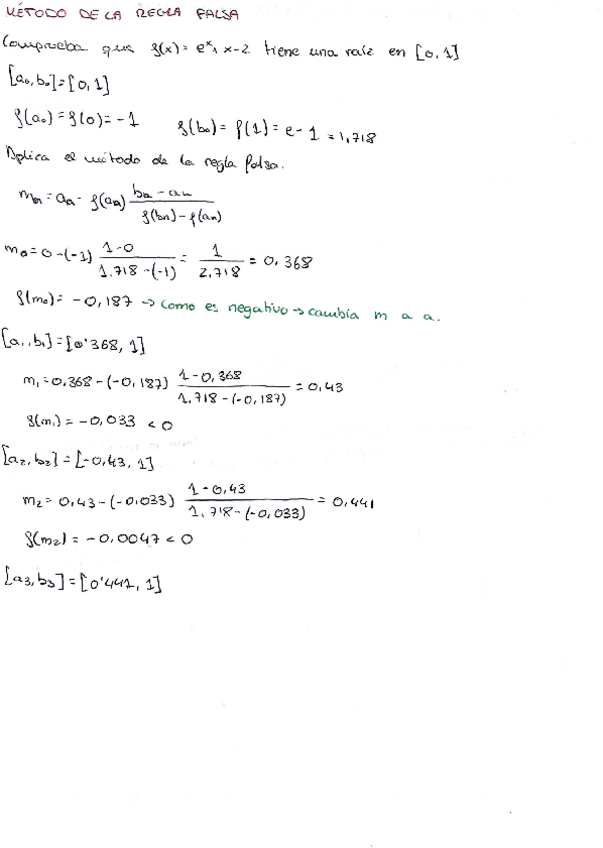 MÉTODO DE LA REGLA FALSA
Comprueba que f(x) = eˣ+x-2 tiene una raíz en [0,1]
[a₀,b₀]=[0,1]
f(a₀)=f(0)=-1 f(b₀)=f(1)=e-1=1,718
Aplica el método de la regla falsa.
mₙ=aₙ-f(aₙ) (bₙ-aₙ)/(f(bₙ)-f(aₙ))
m₀=0-(-1) (1-0)/(1,718-(-1)) = 1/2,718 = 0,368
f(m₀)=-0,187 → como es negativo → cambia m a a.
[a₁,b₁]=[0'368,1]
m₁=0,368-(-0,187) (1-0,368)/(1,718-(-0,187)) = 0,43
f(m₁)=-0,033 < 0
[a₂,b₂]=[-0,43,1]
m₂=0,43-(-0,033) (1-0,43)/(1,718-(-0,033)) = 0,441
f(m₂)=-0,0047 < 0
[a₃,b₃]=[0'441,1]